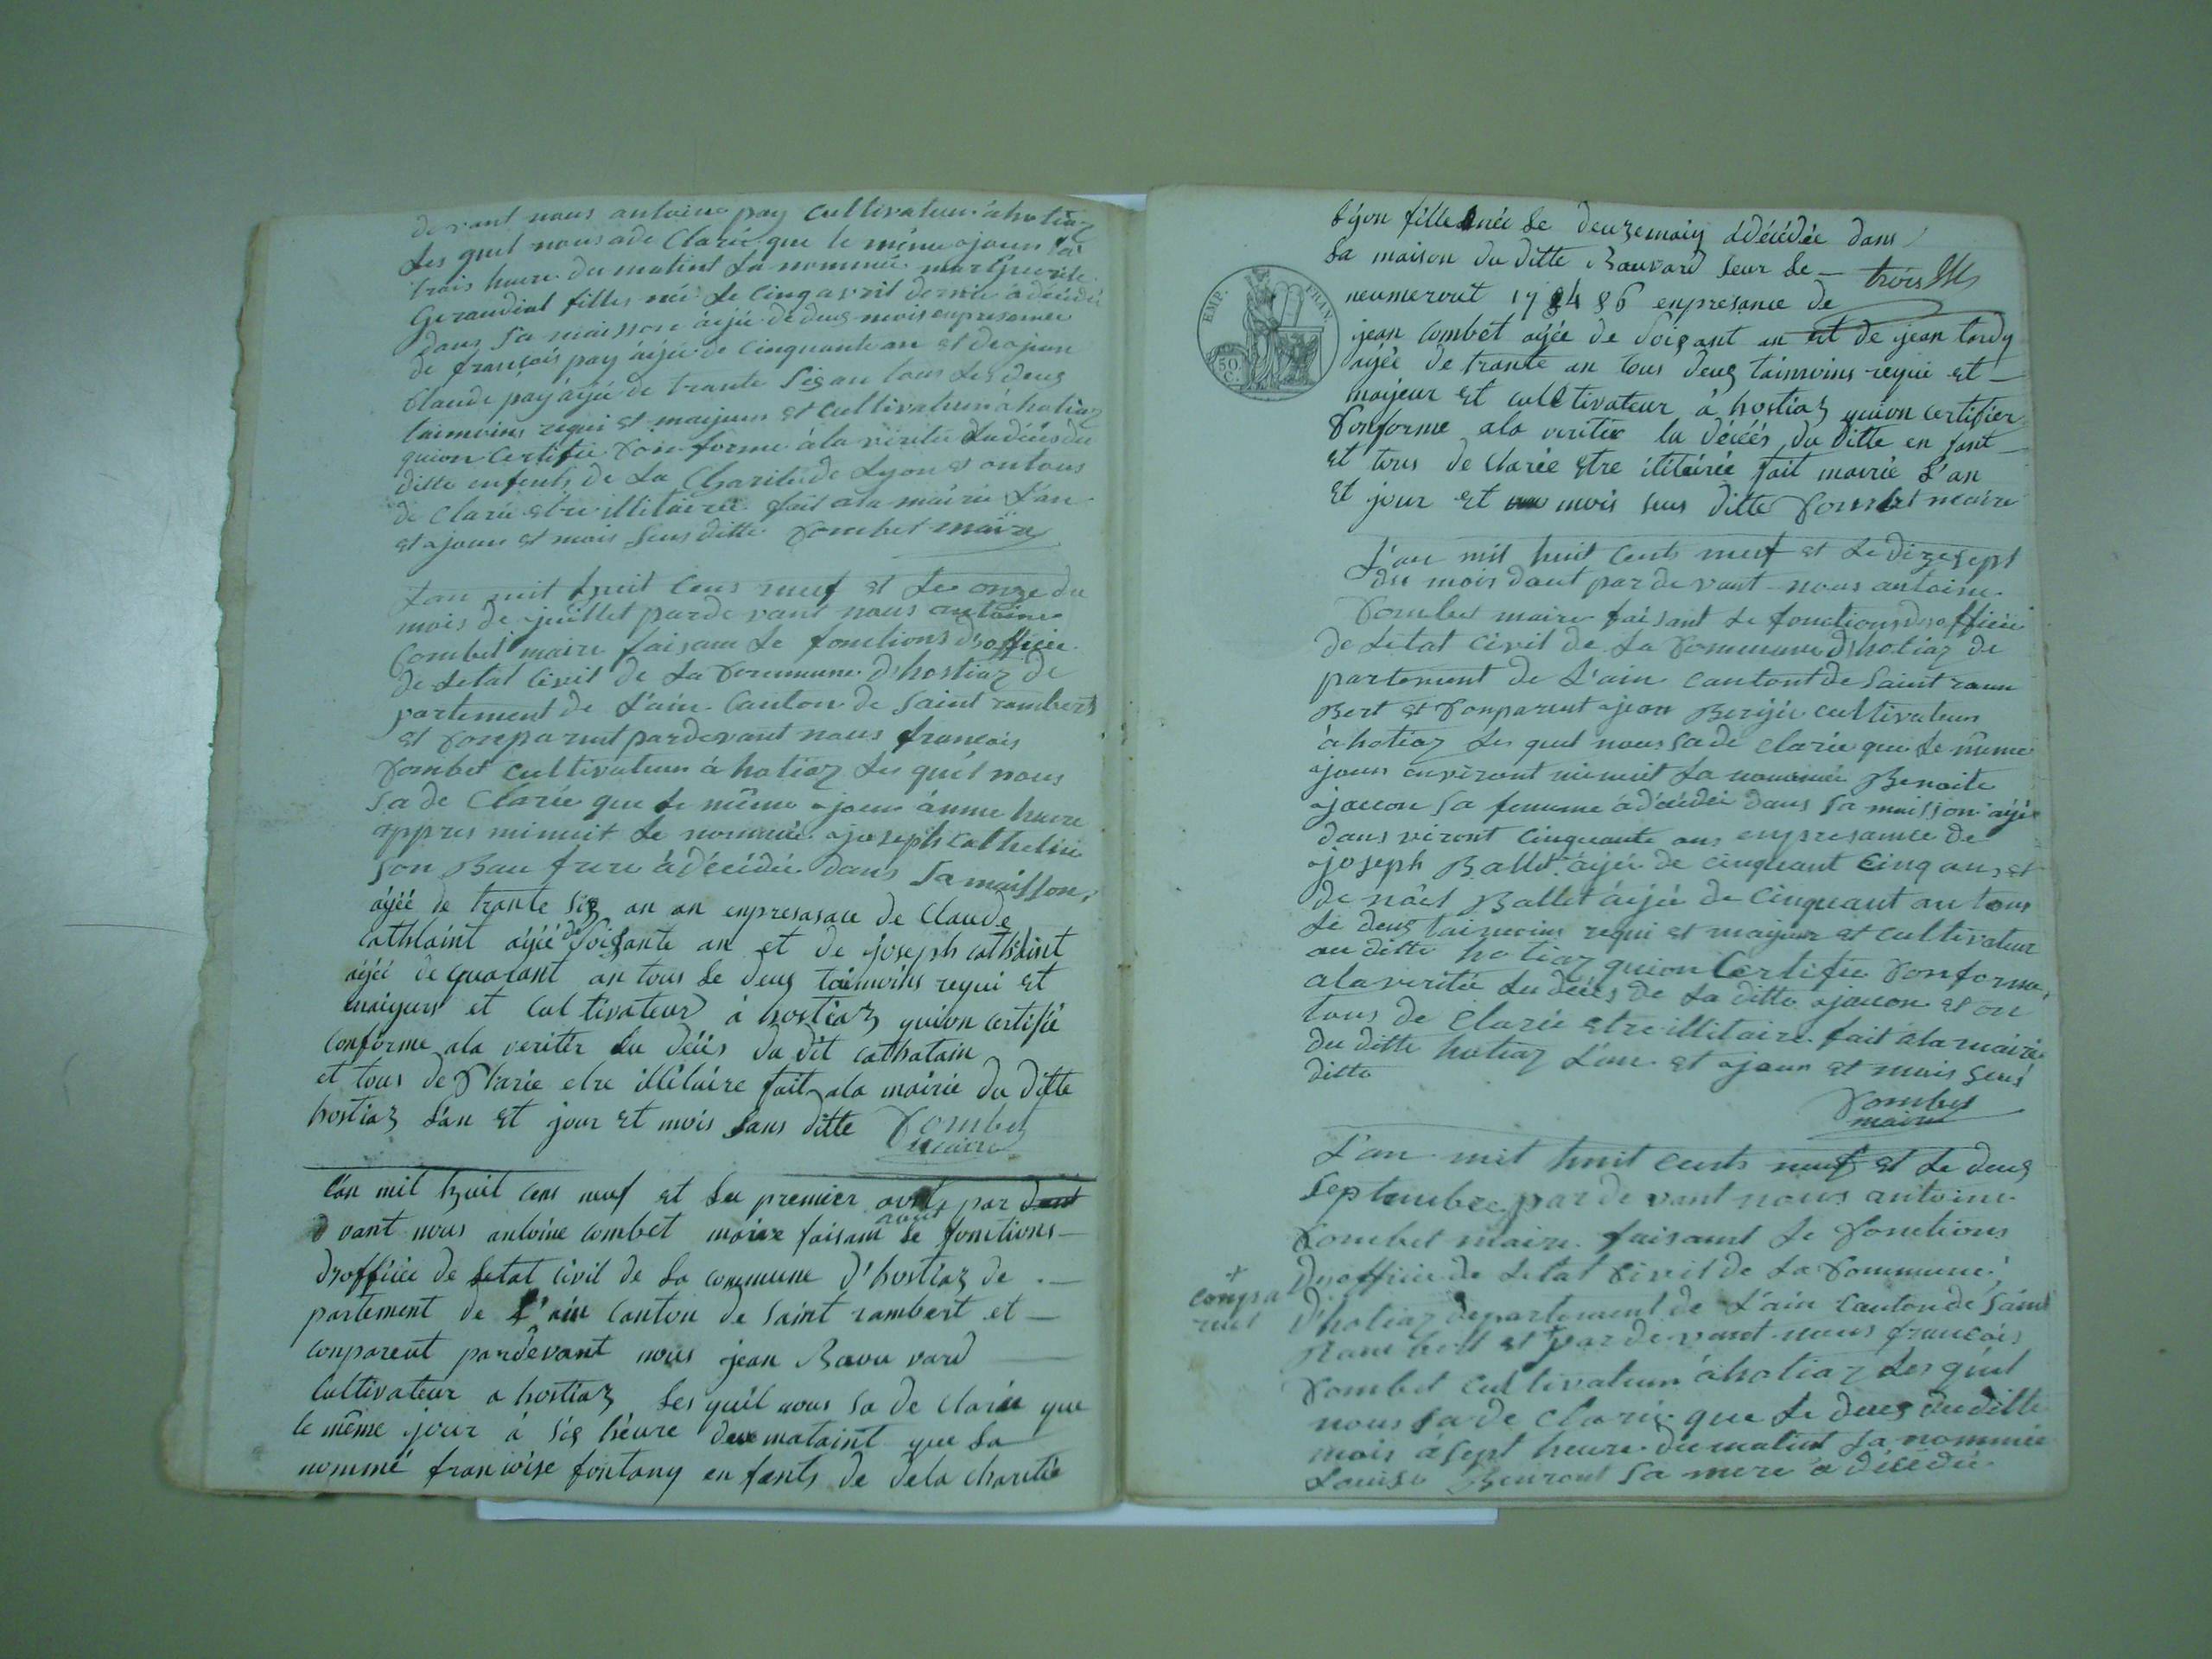 de vant nous antoine pay cultivateur a hotiaz
Les quel nous a de Clarée que le même ajour à
trois heure du matint La nommée margueritte
Geraudial filles née Le cinq avril dernie a décédée
dans sa maisson aijée de deug mois enpresence
de françois pay aijée de Cinquante an et de ajean
Claude pay aijée de trante Sig an tous Les deug
taimoins requi et maijeurs et Cultivateur a hotiaz
quion Certifie Conforme à la vérité du décés du
ditte enfents de La Charité de Lyon et on tous
de Clarée etre illitairée fait a la mairie L'an
et ajour et mois Sus ditte Combet maire
L'an mit huit Cens neuf et Le onze du
mois de juillet parde vant nous antoine
Combet maire faisam Le fonctions d'sofficie
de Letat Civil de La Commune d'hostiaz de
partement de L'ain Canton de Saint rambert
et Conparut pardevant nous francois
Combet Cultivateur à hotiaz Les quel nous
Sa de Clarée que Le même ajour à unne heure
appres minuit Le nommée ajoseph Cathelin
son Bau frere à décédée dans Sa maisson,
aijée de trante sig an an enpresasance de Claude
Cathlaint aijée de Soisante an et de joseph cathlaint
aijée de quarant an tous Le deug taimoins requi et
maigurs et Cultivateur à hostiaz quion certifie
conforme ala veriter Lu décés du dit cathatain
et tous de Clarie etre illitaire fait ala mairie du ditte
hostiaz L'an et jour et mois Sans ditte Combet
maire
L'an mit huit cens neuf et Le premier par
aout
d vant nous antoine combet maire faisam Le fonctions
d'sofficie de Letat civil de La commune d'hostiaz de
partement de L'ain Canton de saint rambert et
conparent pardevant nous jean Bauvard
Cultivateur a hostiaz Les quil nous sa de clarée que
le même jour à sig heure du mataint que La
nommé francoise fontany en fants de dela charitie
Lyon fille née Le deuzemaiy a décédée dans
Sa maison du ditte Bauvard Seur Le trois
neumerout 178486 enpresance de
jean combet aijée de Soisant an et de jean tardy
aijée de trante an tous deug taimoins requi et
majeur et cultivateur à hostiaz quion certifier
Conforme ala veriter lu décés du ditte en fent
et tous de Clarée etre ilitéirée fait mairie L'an
et jour et mois sus ditte Combet maire
L'an mit huit Cents neuf et Le dizesept
du mois daut parde vant nous antoine
Combet maire faisant Le fonctions d'sofficie
de Letat Civil de La Commune d'hotiaz de
partement de L'ain Cantont de Saint ram
Bert et Conparut ajean Bergée cultivateur
à hotiaz Les quel nous sa de Clarée que Le même
ajour anviront minuit La nommée Benoite
ajacon Sa femme à décédée dans sa maisson aijée
dans viront Cinquante ans enpresance de
ajoseph Ballet aijée de cinquant cinq ans et
de naël Ballet aijée de Cinquant an tous
Le deug taimoins requi et maijeur et cultivateur
au ditte hotiaz quion Certifie Conforme,
a la verité Lu décés de La ditte ajacon et on
tous de Clarée etre illitaire fait a la mairie
du ditte hotiaz L'an et ajour et mois Sus
ditte
Combet
maire
L'an mit huit cents neuf et Le deug
Septembre parde vant nous antoine
Combet maire faisant Le fonctions
d'sofficie de Letat Civil de La Commune
+
conpa
rut
d'hotiaz departement de L'ain Canton de Saint
Ram bert et + parde vant nous francois
Combet Cultivateur à hotiaz Les quel
nous sa de Clarée que Le deug du ditte
mois à sept heure du matint La nommée
Louise Sa mere a décédée